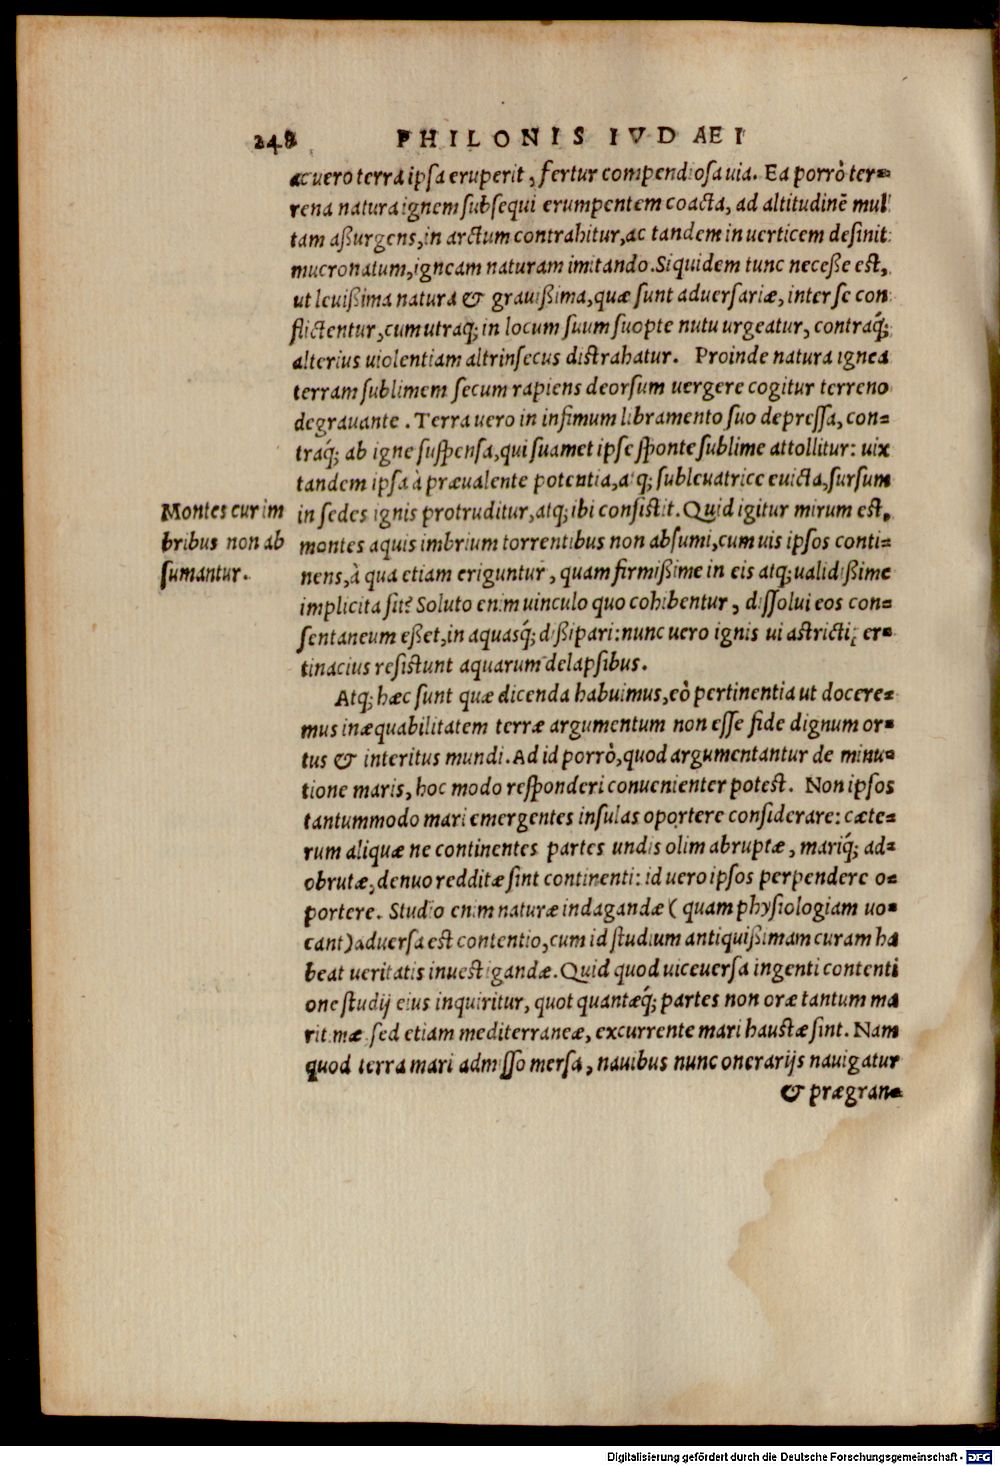 248 PHILONIS IVDAEI
ac vero terra ipsa eruperit, fertur compendiosa uia. Ea porrò ter-
rena natura ignem subsequi erumpentem coacta, ad altitudinē mul
tam aßurgens, in arctum contrahitur, ac tandem in uerticem desinit
mucronatum, igneam naturam imitando. Siquidem tunc neceße est,
ut leuißima natura & grauißima, quæ sunt aduersariæ, inter se con
flictentur, cum utraq; in locum suum suopte nutu urgeatur, contraq́;
alterius uiolentiam altrinsecus distrahatur. Proinde natura ignea
terram sublimem secum rapiens deorsum uergere cogitur terreno
degrauante. Terra uero in infimum libramento suo depressa, con-
traq́; ab igne suspensa, qui suamet ipse sponte sublime attollitur: uix
tandem ipsa à præualente potentia, atq; subleuatrice euicta, sursum
in sedes ignis protruditur, atq; ibi consistit. Quid igitur mirum est,
montes aquis imbrium torrentibus non absumi, cum uis ipsos conti-
nens, à qua etiam eriguntur, quam firmißime in eis atq; ualidißime
implicita sit? Soluto enim uinculo quo cohibentur, dissolui eos con-
sentaneum eßet, in aquasq́; dißipari: nunc uero ignis ui astricti, er-
tinacius resistunt aquarum delapsibus.
Montes cur im
bribus non ab
sumantur.
Atq; hæc sunt quæ dicenda habuimus, eò pertinentia ut docere-
mus inæquabilitatem terræ argumentum non esse fide dignum or-
tus & interitus mundi. Ad id porrò, quod argumentantur de minu-
tione maris, hoc modo responderi conuenienter potest. Non ipsos
tantummodo mari emergentes insulas oportere considerare: cæte-
rum aliquæ ne continentes partes undis olim abruptæ, mariq́; ad-
obrutæ, denuo redditæ sint continenti: id uero ipsos perpendere o-
portere. Studio enim naturæ indagandæ (quam physiologiam uo-
cant) aduersa est contentio, cum id studium antiquißimam curam ha
beat ueritatis inuestigandæ. Quid quod uiceuersa ingenti contenti
one studij eius inquiritur, quot quantæq́; partes non oræ tantum ma
ritimæ sed etiam mediterraneæ, excurrente mari haustæ sint. Nam
quod terra mari admisso mersa, nauibus nunc onerarijs nauigatur
& prægran-
Digitalisierung gefördert durch die Deutsche Forschungsgemeinschaft - DFG